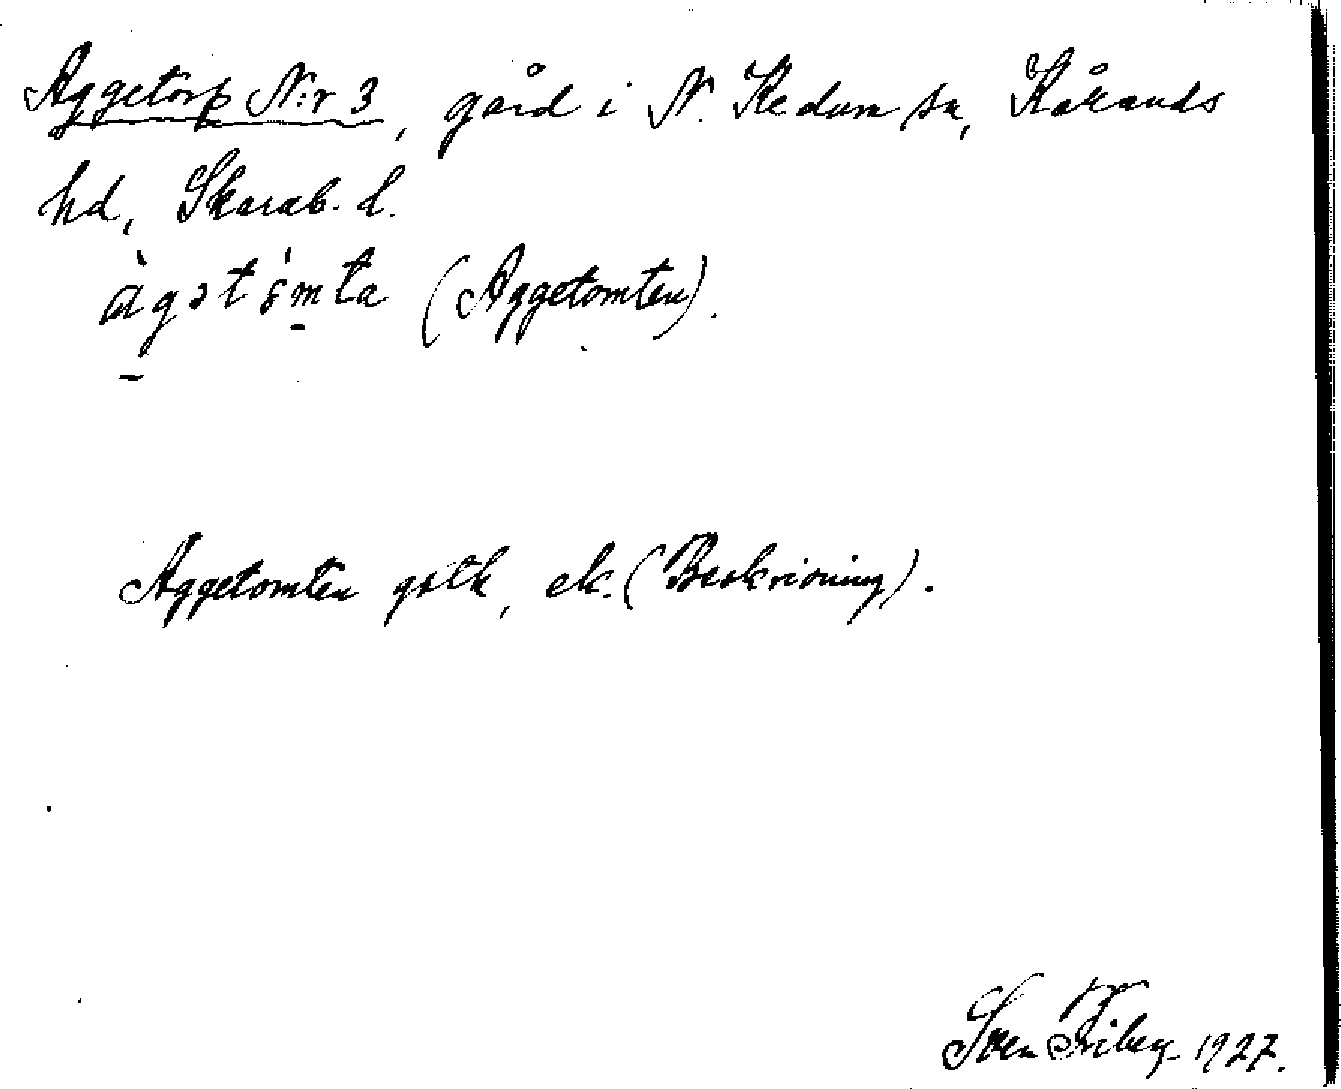 Aggetorp N:r 3, gård i N. Kedum sn, Kåkands
hd, Skarab. l.
àgətǿmta (Aggetomten).
Aggetomten gstk, ek. (Beskrivning).
Sven Friberg 1927.